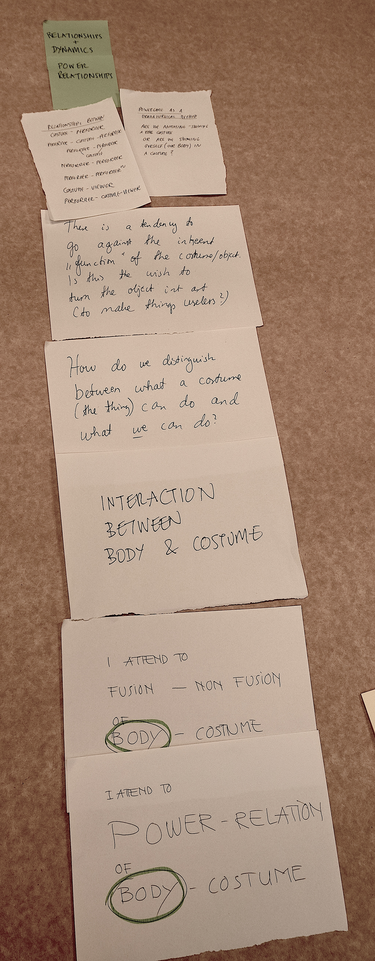 RELATIONSHIPS
+
DYNAMICS
POWER
RELATIONSHIPS
RELATIONSHIPS BETWEEN
COSTUME - PERFORMER
COSTUME - PERFORMER
PERFORMER - PERFORMER
COSTUME - VIEWER
PERFORMER - COSTUME - VIEWER
AS A
ARE WE
A COSTUME
OR ARE WE
(OUR BODY) IN
A COSTUME?
There is a tendency to
go against the inherent
"function" of the costume/object.
Is this the wish to
turn the object int art
(to make things useless?)
How do we distinguish
between what a costume
(the thing) can do and
what we can do?
INTERACTION
BETWEEN
BODY & COSTUME
I ATTEND TO
FUSION - NON FUSION
OF
BODY - COSTUME
I ATTEND TO
POWER-RELATION
OF
BODY - COSTUME